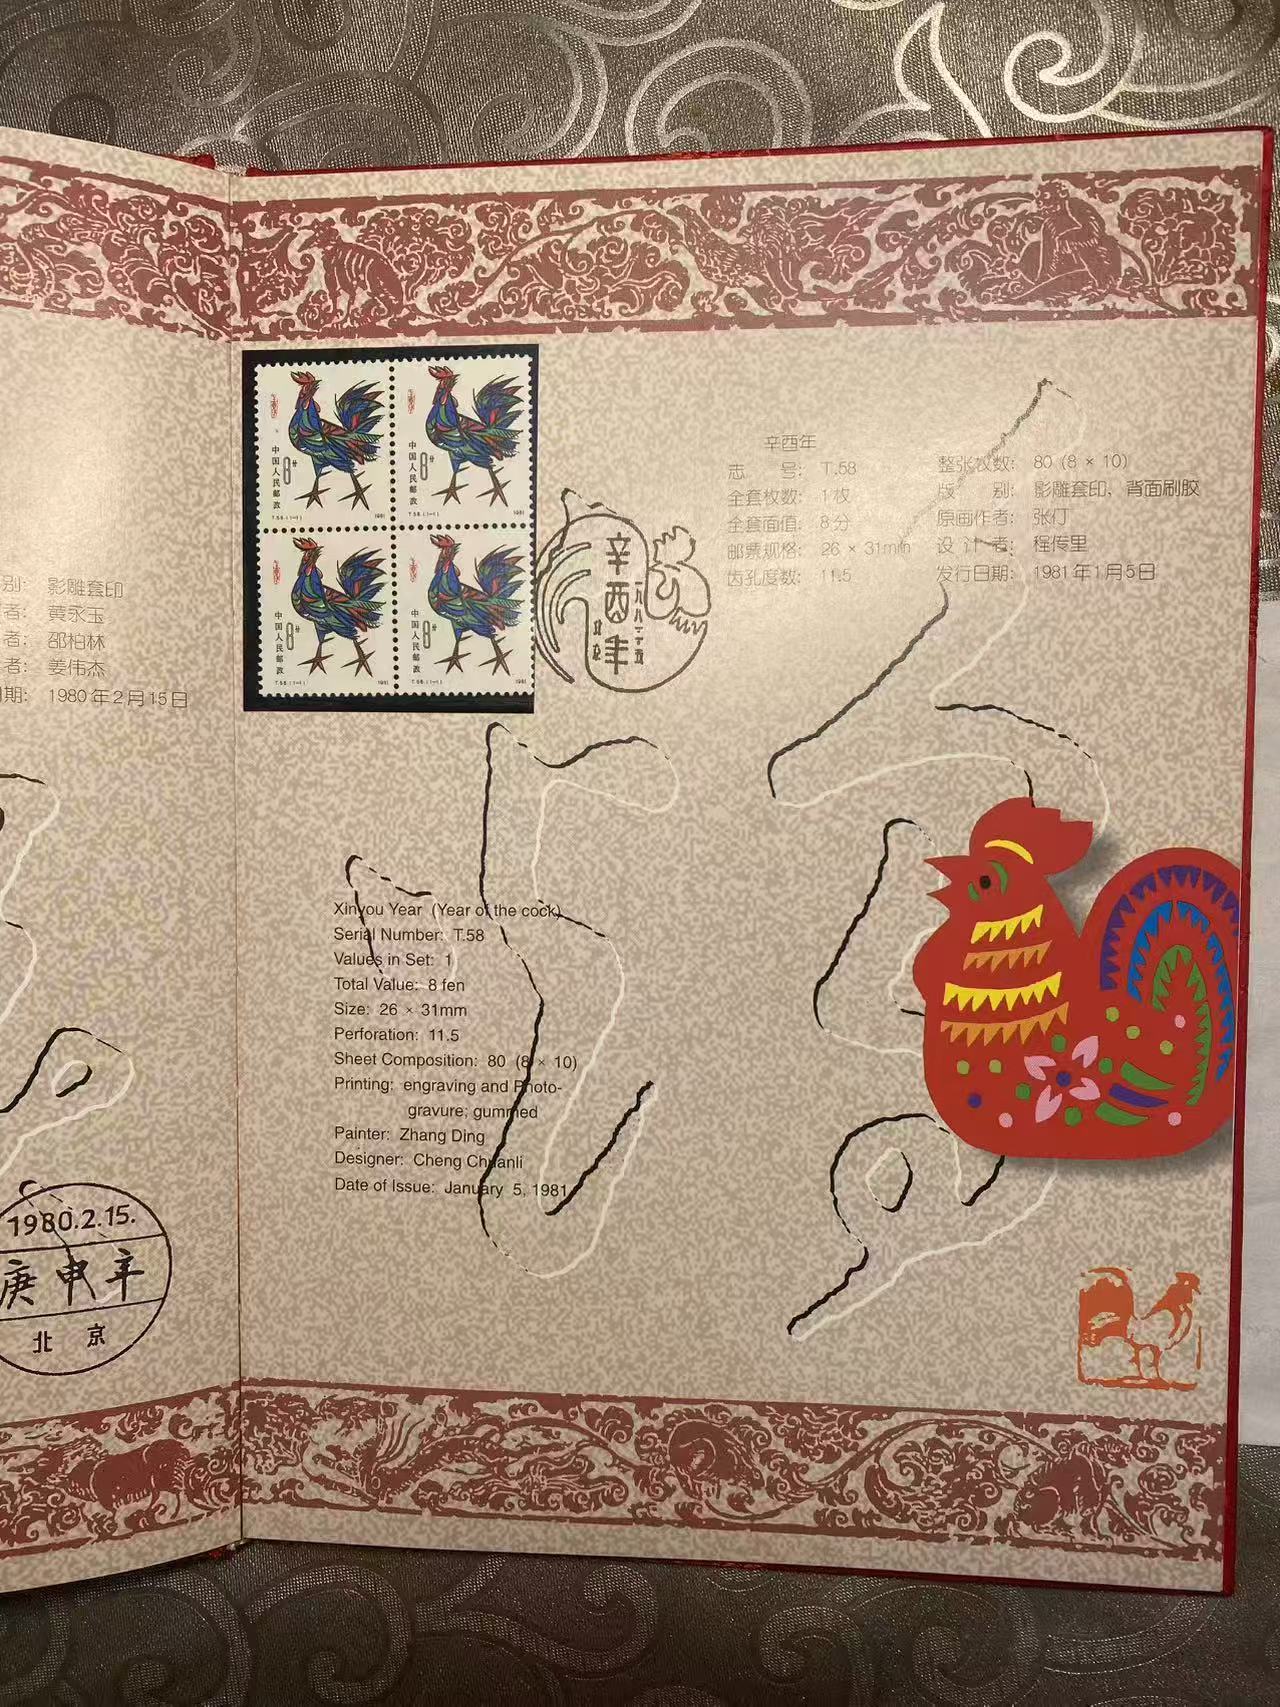 别: 影雕套印
者: 黄永玉
者: 邵柏林
者: 姜伟杰
期: 1980年2月15日
1980.2.15.
庚申年
北京
中国人民邮政
8分
T.58.(1-1)
1981
中国人民邮政
8分
T.58.(1-1)
1981
中国人民邮政
8分
T.58.(1-1)
1981
中国人民邮政
8分
T.58.(1-1)
1981
辛酉年
一九八一·一·五
北京
辛酉年
志 号: T.58
全套枚数: 1枚
全套面值: 8分
邮票规格: 26 × 31min
齿孔度数: 11.5
整张枚数: 80 (8 × 10)
版 别: 影雕套印、背面刷胶
原画作者: 张仃
设 计 者: 程传里
发行日期: 1981年1月5日
Xinyou Year (Year of the cock)
Serial Number: T.58
Values in Set: 1
Total Value: 8 fen
Size: 26 × 31mm
Perforation: 11.5
Sheet Composition: 80 (8 × 10)
Printing: engraving and Photo-
gravure; gummed
Painter: Zhang Ding
Designer: Cheng Chuanli
Date of Issue: January 5, 1981